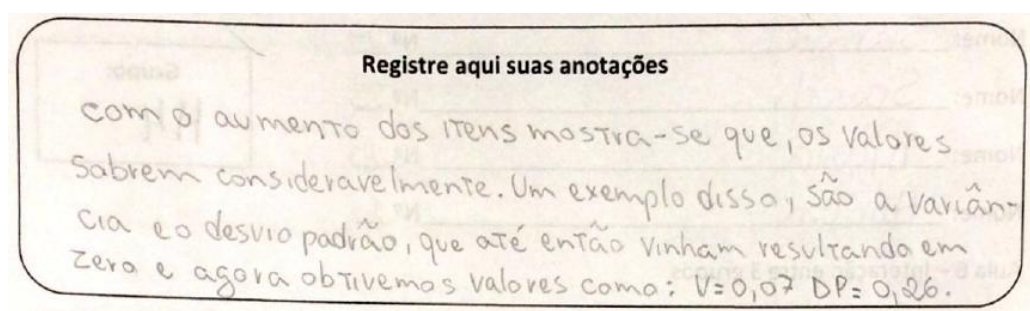 Registre aqui suas anotações
com o aumento dos itens mostra-se que, os valores
Sobrem consideravelmente. Um exemplo disso, são a variân-
cia e o desvio padrão, que até então vinham resultando em
zero e agora obtivemos valores como: V=0,07 DP=0,26.